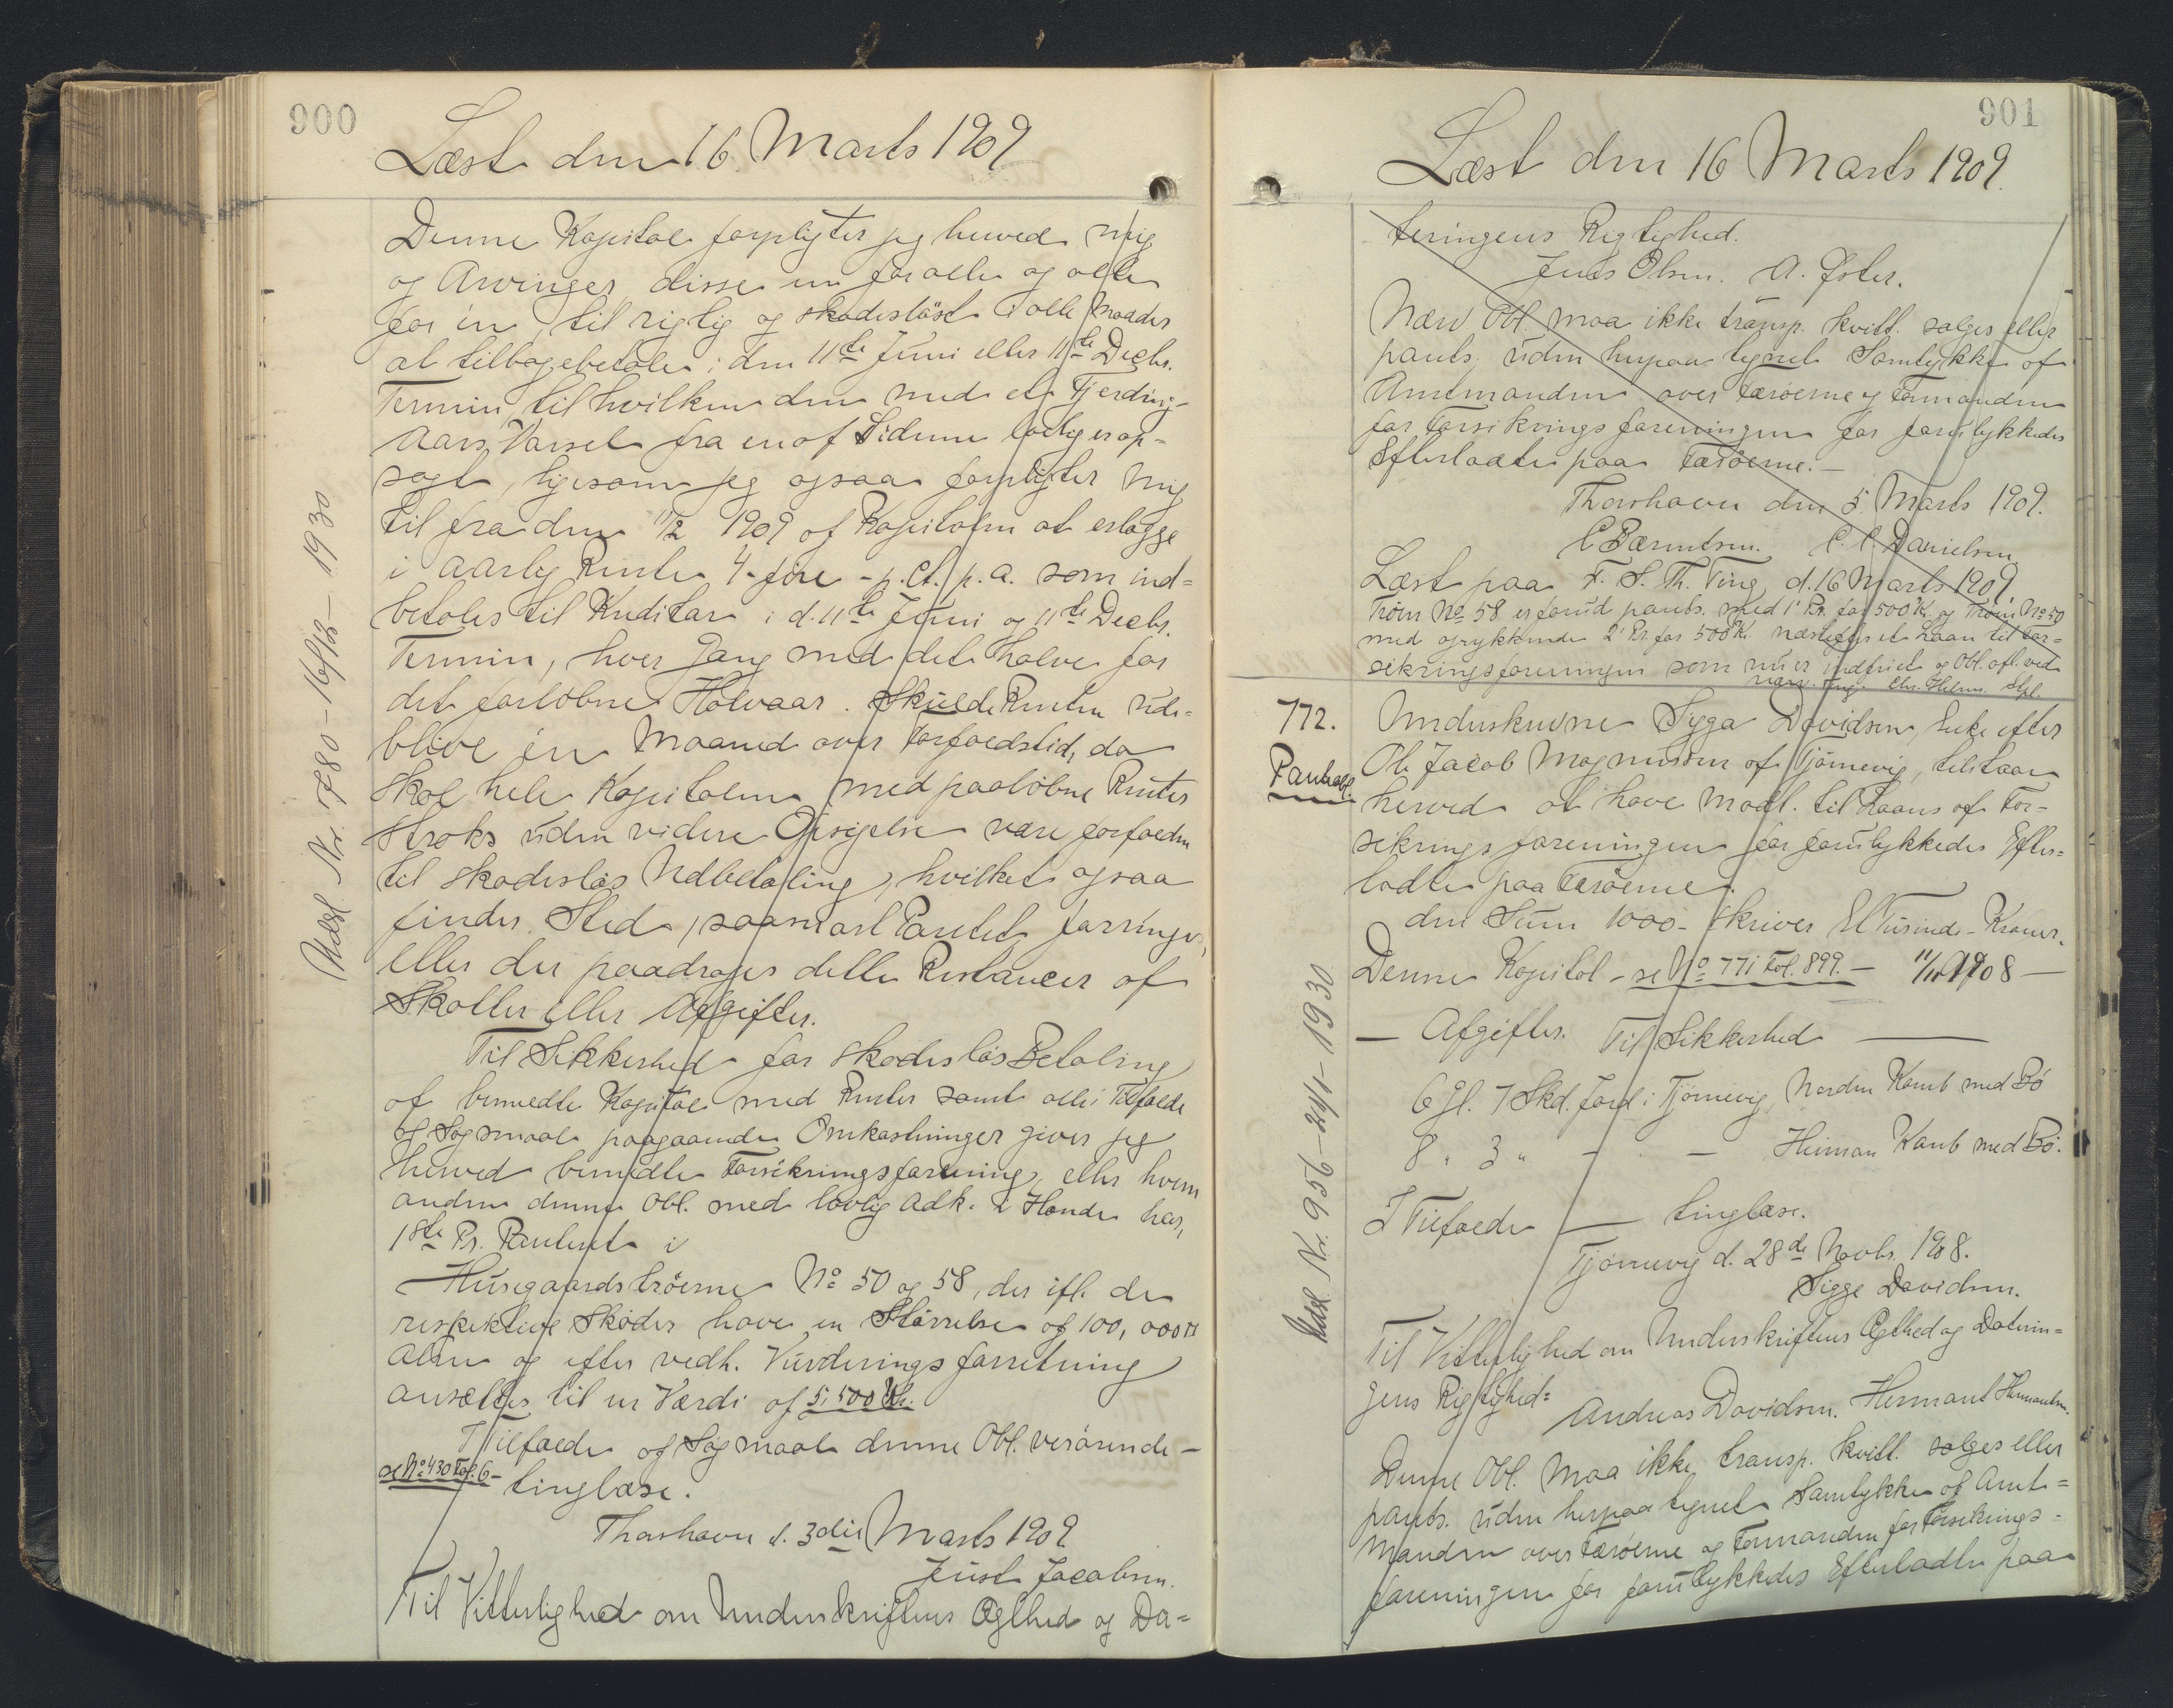 900
Læst den 16. Marts 1909
Denne Kapital forpligter jeg herved mig
og Arvinger, disse en for alle og alle
for én, til rigtig og skadesløst i alle Maader
at tilbagebetale i den 11te Juni eller 11te Decbr.
Termin, til hvilken den med et Fjerding-
aars Varsel fra en af Siderne lovlig er op-
sagt, ligesom jeg ogsaa forpligter mig
til fra den 11/12 1909 af Kapitalen at erlægge
i aarlig Rente 4 - fire - p.Ct. p.a. som ind=
betales til Kreditor i d. 11te Juni og 11te Decbr.
Termin, hver Gang med det halve for
det forløbne Halvaar. Skulde Renten ude-
blive én Maaned over Forfaldstid, da
skal hele Kapitalen med paaløbne Renter
straks uden videre Opsigelse være forfalden
til skadesløs Udbetaling, hvilket ogsaa
finder Sted, saasnart Pantet forringes,
eller der paadrages dette Restancer af
Skatter eller Afgifter.
Til Sikkerhed for skadesløs Betaling
af bemeldte Kapital med Renter samt alle i Tilfælde
af Søgsmaal paagaaende Omkostninger giver jeg
herved bemeldte Forsikringsforening, eller hvem
anden denne Obl. med lovlig Adk. i Hænde har,
1ste Pr. Panteret i
Husegaardstrøerne No 50 og 58, der ifl. de
respektive Skøder have en Størrelse af 100,000 □
Alen og efter vedh. Vurderingsforretning
ansættes til en Værdi af 5,500 Kr.
I Tilfælde af Søgsmaal denne Obl. vedrørende -
se No 430 Fol. 6 - tinglæse.
Thorshavn d. 3die Marts 1909
Just Jacobsen.
Til Vitterlighed om Underskriftens Ægthed og Da=
Udsl. Nr. 780 - 16/12 - 1930
901
Læst den 16 Marts 1909.
teringens Rigtighed.
Jens Olsen. A. Øster.
Nærv. Obl. maa ikke transp. kvitt. sælges eller
pants. uden herpaa tegnet Samtykke af
Amtmanden over Færøerne og Formanden
for Forsikringsforeningen for forulykkedes
Efterladte paa Færøerne.-
Thorshavn den 5 Marts 1909.
C Bærentsen. C. C. Danielsen
Læst paa F. S. Th. Ting, d. 16 Marts 1909.
Trøen No 58 er forud pants. med 1' Pr. for 500 Kr. og Trøen No 50
med oprykkende 2' Pr. for 500 Kr. næstefter et Laan til For=
sikringsforeningen som nu er indfriet og Obl. afl. ved
nærv. Ting. Chr. Holm. Stpl.
772.
Pantobl.
Underskrevne Sygga Davidsen, Enke efter
Ole Jacob Magnussen af Tjørnevig, tilstaar
herved at have modt. til Laans af For-
sikringsforeningen for forulykkedes Efter=
ladte paa Færøerne,
den Sum 1000 - skriver Et Tusinde - Kroner.
Denne Kapital - se No 771 Fol. 899. - 11/12 1908 -
- Afgifter. Til Sikkerhed -
6 Gl. 7 Skd. Jord i Tjørnevig, Norden Kamb med Bø
8 " 3 " - - Heiman Kamb med Bø.
I Tilfælde - tinglæse.
Tjørnevig d. 28de Novbr. 1908.
Sigge Davidsen.
Til Vitterlighed om Underskriftens Ægthed og Daterin=
gens Rigtighed:
Andreas Davidsen. Hermant Hermantsen.
Denne Obl. maa ikke transp. kvitt. sælges eller
pants. uden herpaa tegnet Samtykke af Amt=
manden over Færøerne og Formanden for Forsikrings=
foreningen for forulykkedes Efterladte paa
Udsl. Nr. 956 - 24/1 - 1930